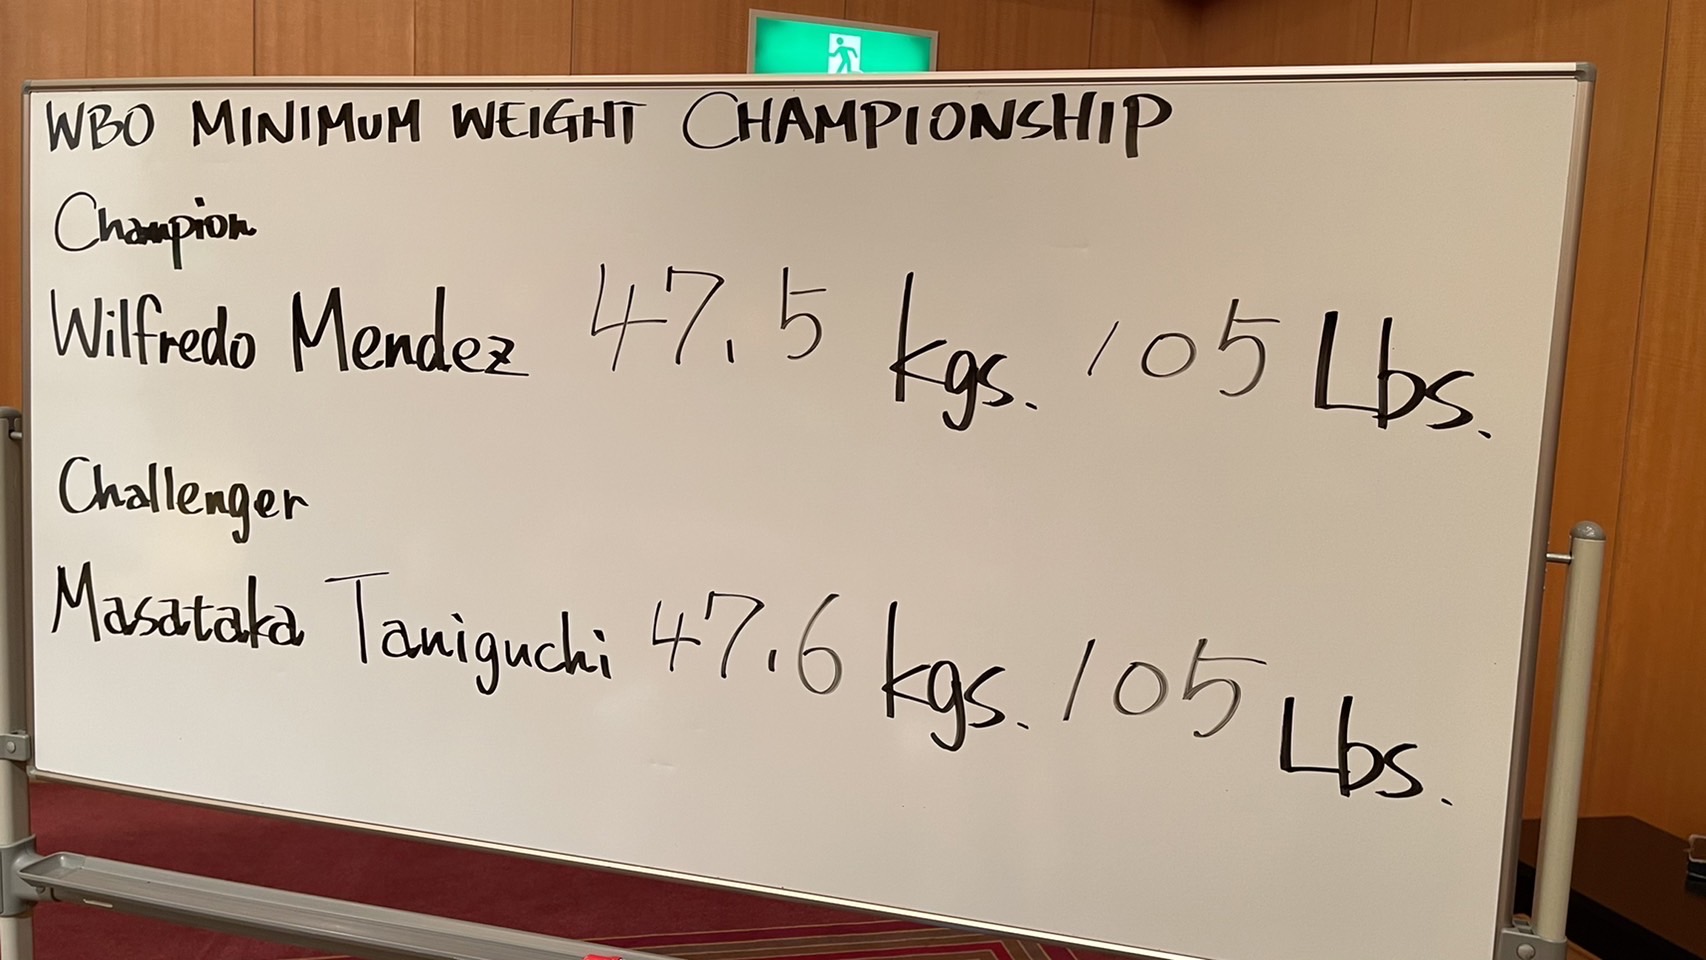 WBO MINIMUM WEIGHT CHAMPIONSHIP
Champion
Wilfredo Mendez 47.5 kgs. 105 Lbs.
Challenger
Masataka Taniguchi 47.6 kgs. 105 Lbs.